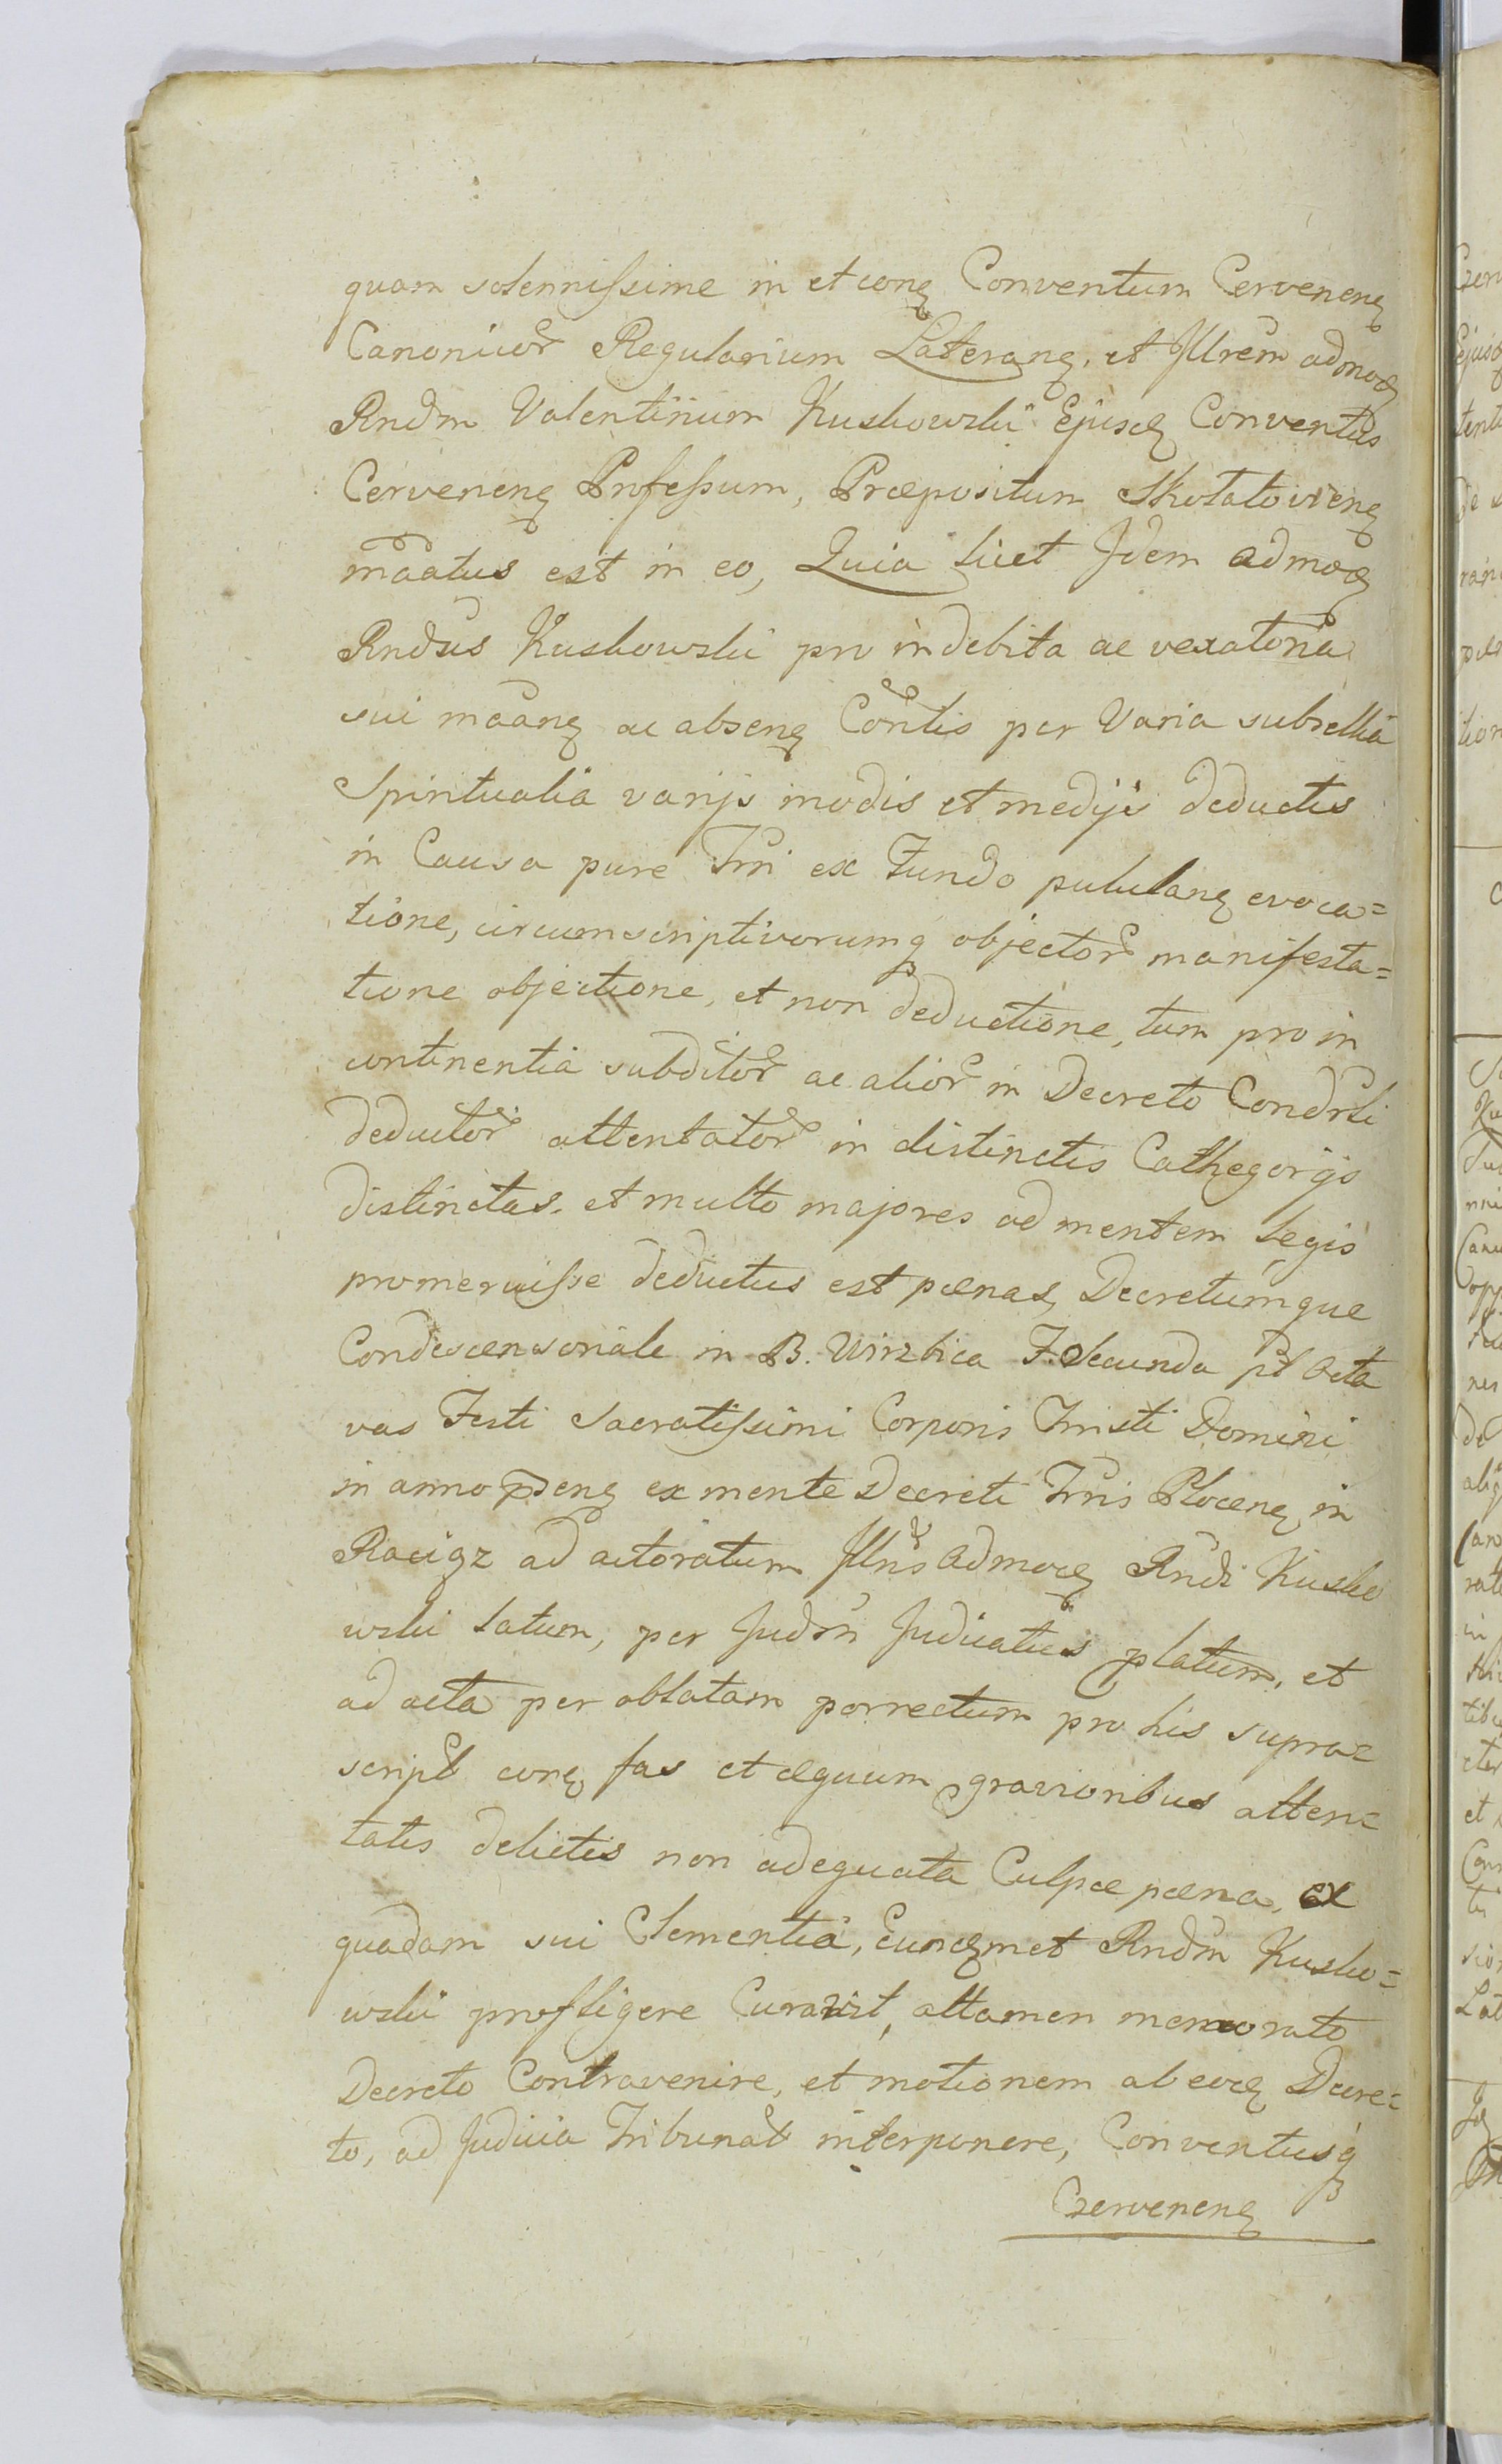 quam solennissime in et conꝫ Conventum Cervenenꝫ
Canonicor̃ Regularium Lateranꝫ. et Jllrem admodꝫ
Rndm Valentinum Kuskowski Ejusdꝫ Conventus
Cervenenꝫ Professum, Præpositum Skołatowienꝫ
maatus est in eo, Quia licet Jdem admodꝫ
Rndus Kuskowski pro indebita ac vexatoria
sui maanꝫ ac absenꝫ Cortis per Varia subsellia
Spiritualia varijs modis et medijs deductis
in Causa pure Trri ex Fundo pululanꝫ evoca=
tione, circumscriptivorumq objector̃ manifesta=
tione objectione, et non deductione, tum pro in
continentia subditor̃ ac alior̃ in Decreto Condrli
deductor̃ attentator̃ in distinctis Cathegorijs
distinctas. et multo majores ad mentem Legis
promeruisse deductus est pænas, Decretumque
Condescensoriale in B. Wirzbica F. Secunda pt Octa
vas Festi Sacratissimi Corporis Christi Domini
in anno p̃senꝫ ex mente Decreti Trris Plocenꝫ in
Raciąz ad actoratum Jllris admodꝫ Rndi Kusko
wski latum, per Judm Judicatus platum, et
ad acta per oblatam porrectum pro his supra=
script conꝫ fas et æquum gravioribus atten=
tatis delictis non adequata Culpæ pæna, ex
quadam sui Clementia, Eundꝫmet Rndm Kusko=
wski profligere Curavit, attamen memorato
Decreto Contravenire, et motionem ab eodꝫ Decre=
to, ad Judicia Tribunal interponere, Conventusq
Czervenenꝫ